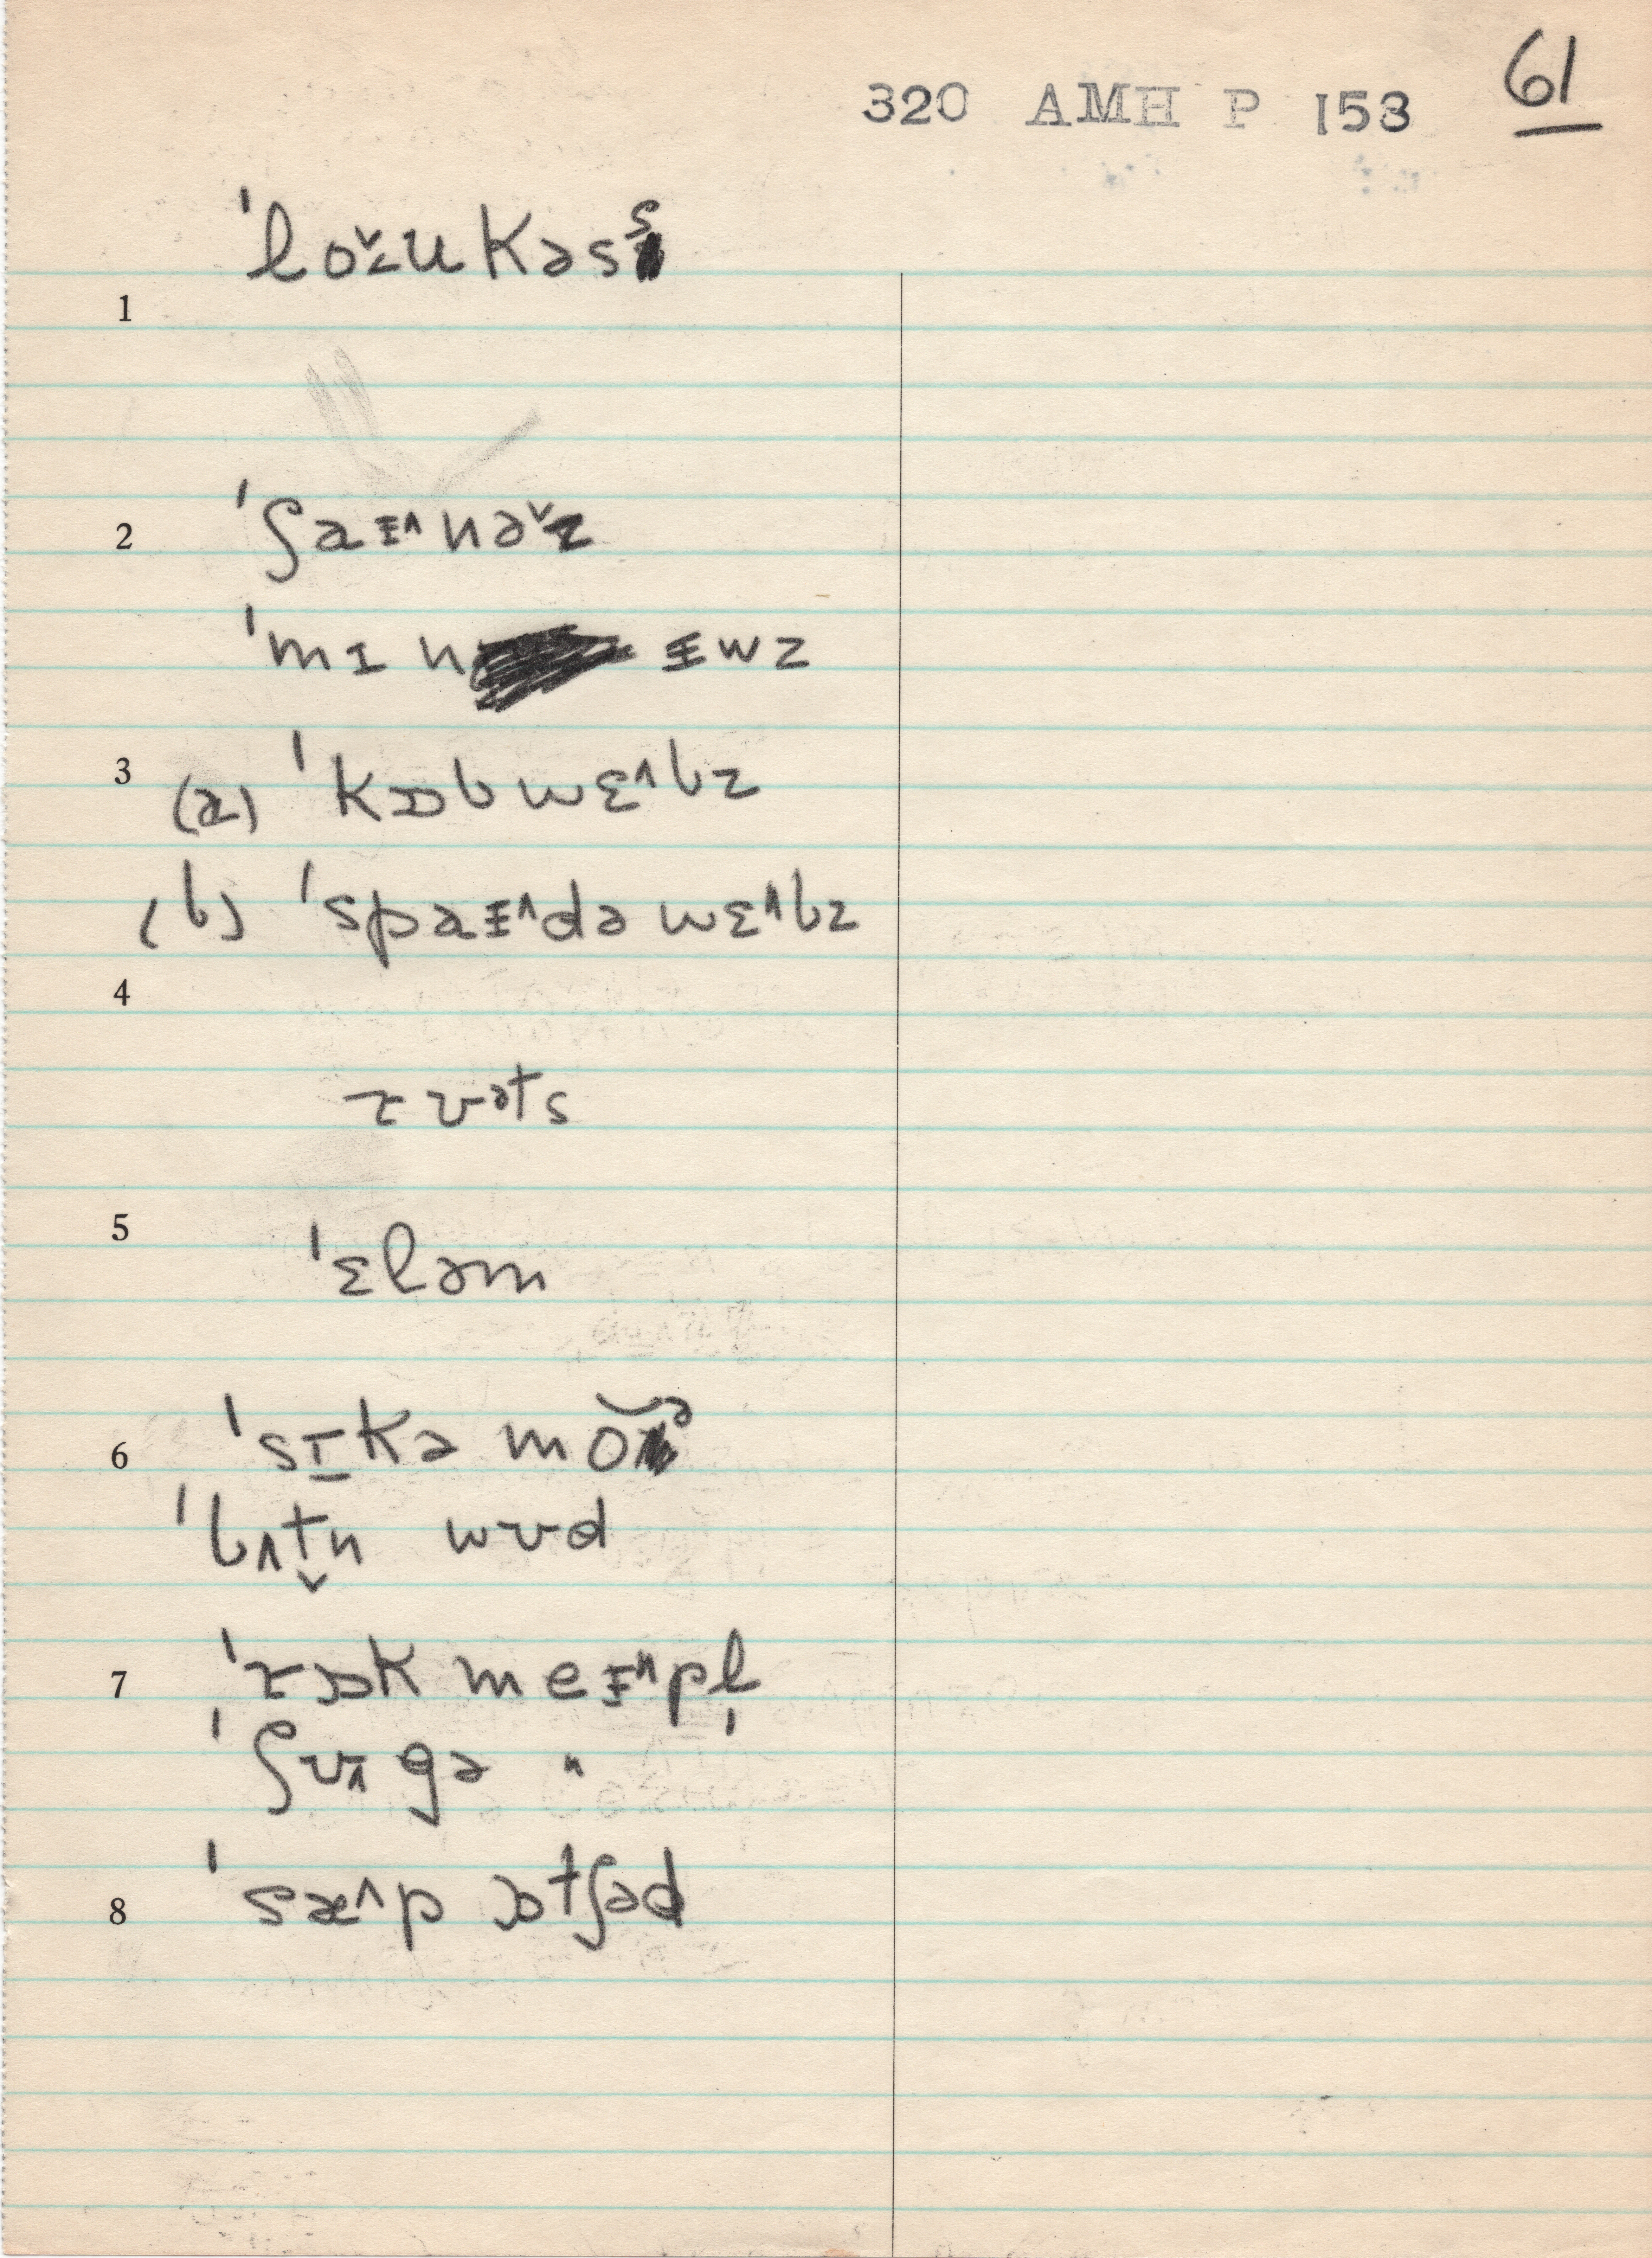 61
320 AMH P 153
ˈlo˅ᴢukəsṣ
1
2 ˈʃaɪ^nə˅z
ˈmɪn ɪwz
3 (a) ˈkɒbwɛ^bz
(b) ˈspaɪ^dəwɛ^bz
4
ɪʊəts
5
ˈɛləm
6 ˈsɪkəmo˘ə
ˈbʌt̬n wʊd
7 ˈɪɒk meɪ^pl̩
ˈʃʊ^gə "
8 ˈsæ^p ɒtʃəd